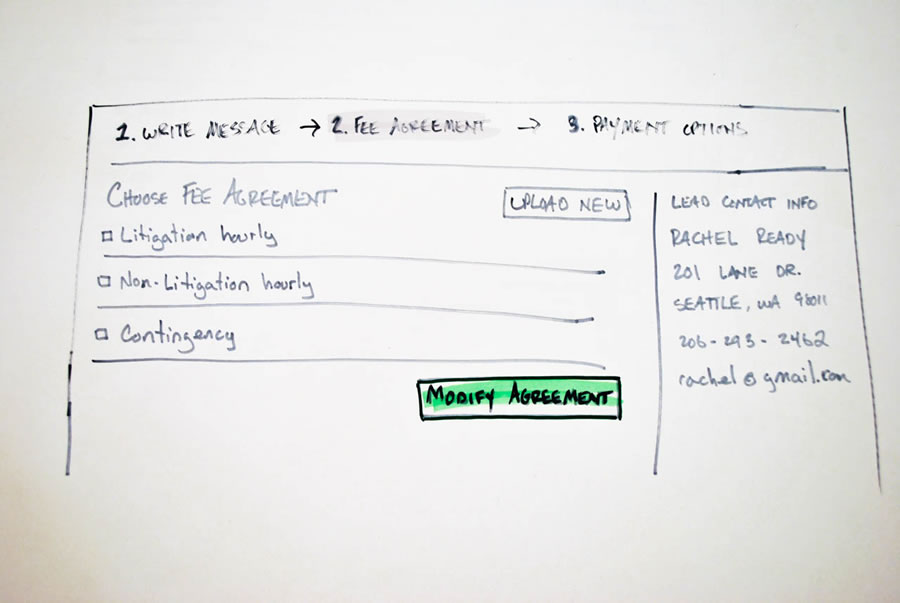 1. WRITE MESSAGE → 2. FEE AGREEMENT → 3. PAYMENT OPTIONS
CHOOSE FEE AGREEMENT
UPLOAD NEW
Litigation hourly
Non-Litigation hourly
Contingency
MODIFY AGREEMENT
LEAD CONTACT INFO
RACHEL READY
201 LANE DR.
SEATTLE, WA 98011
206-293-2462
rachel@gmail.com